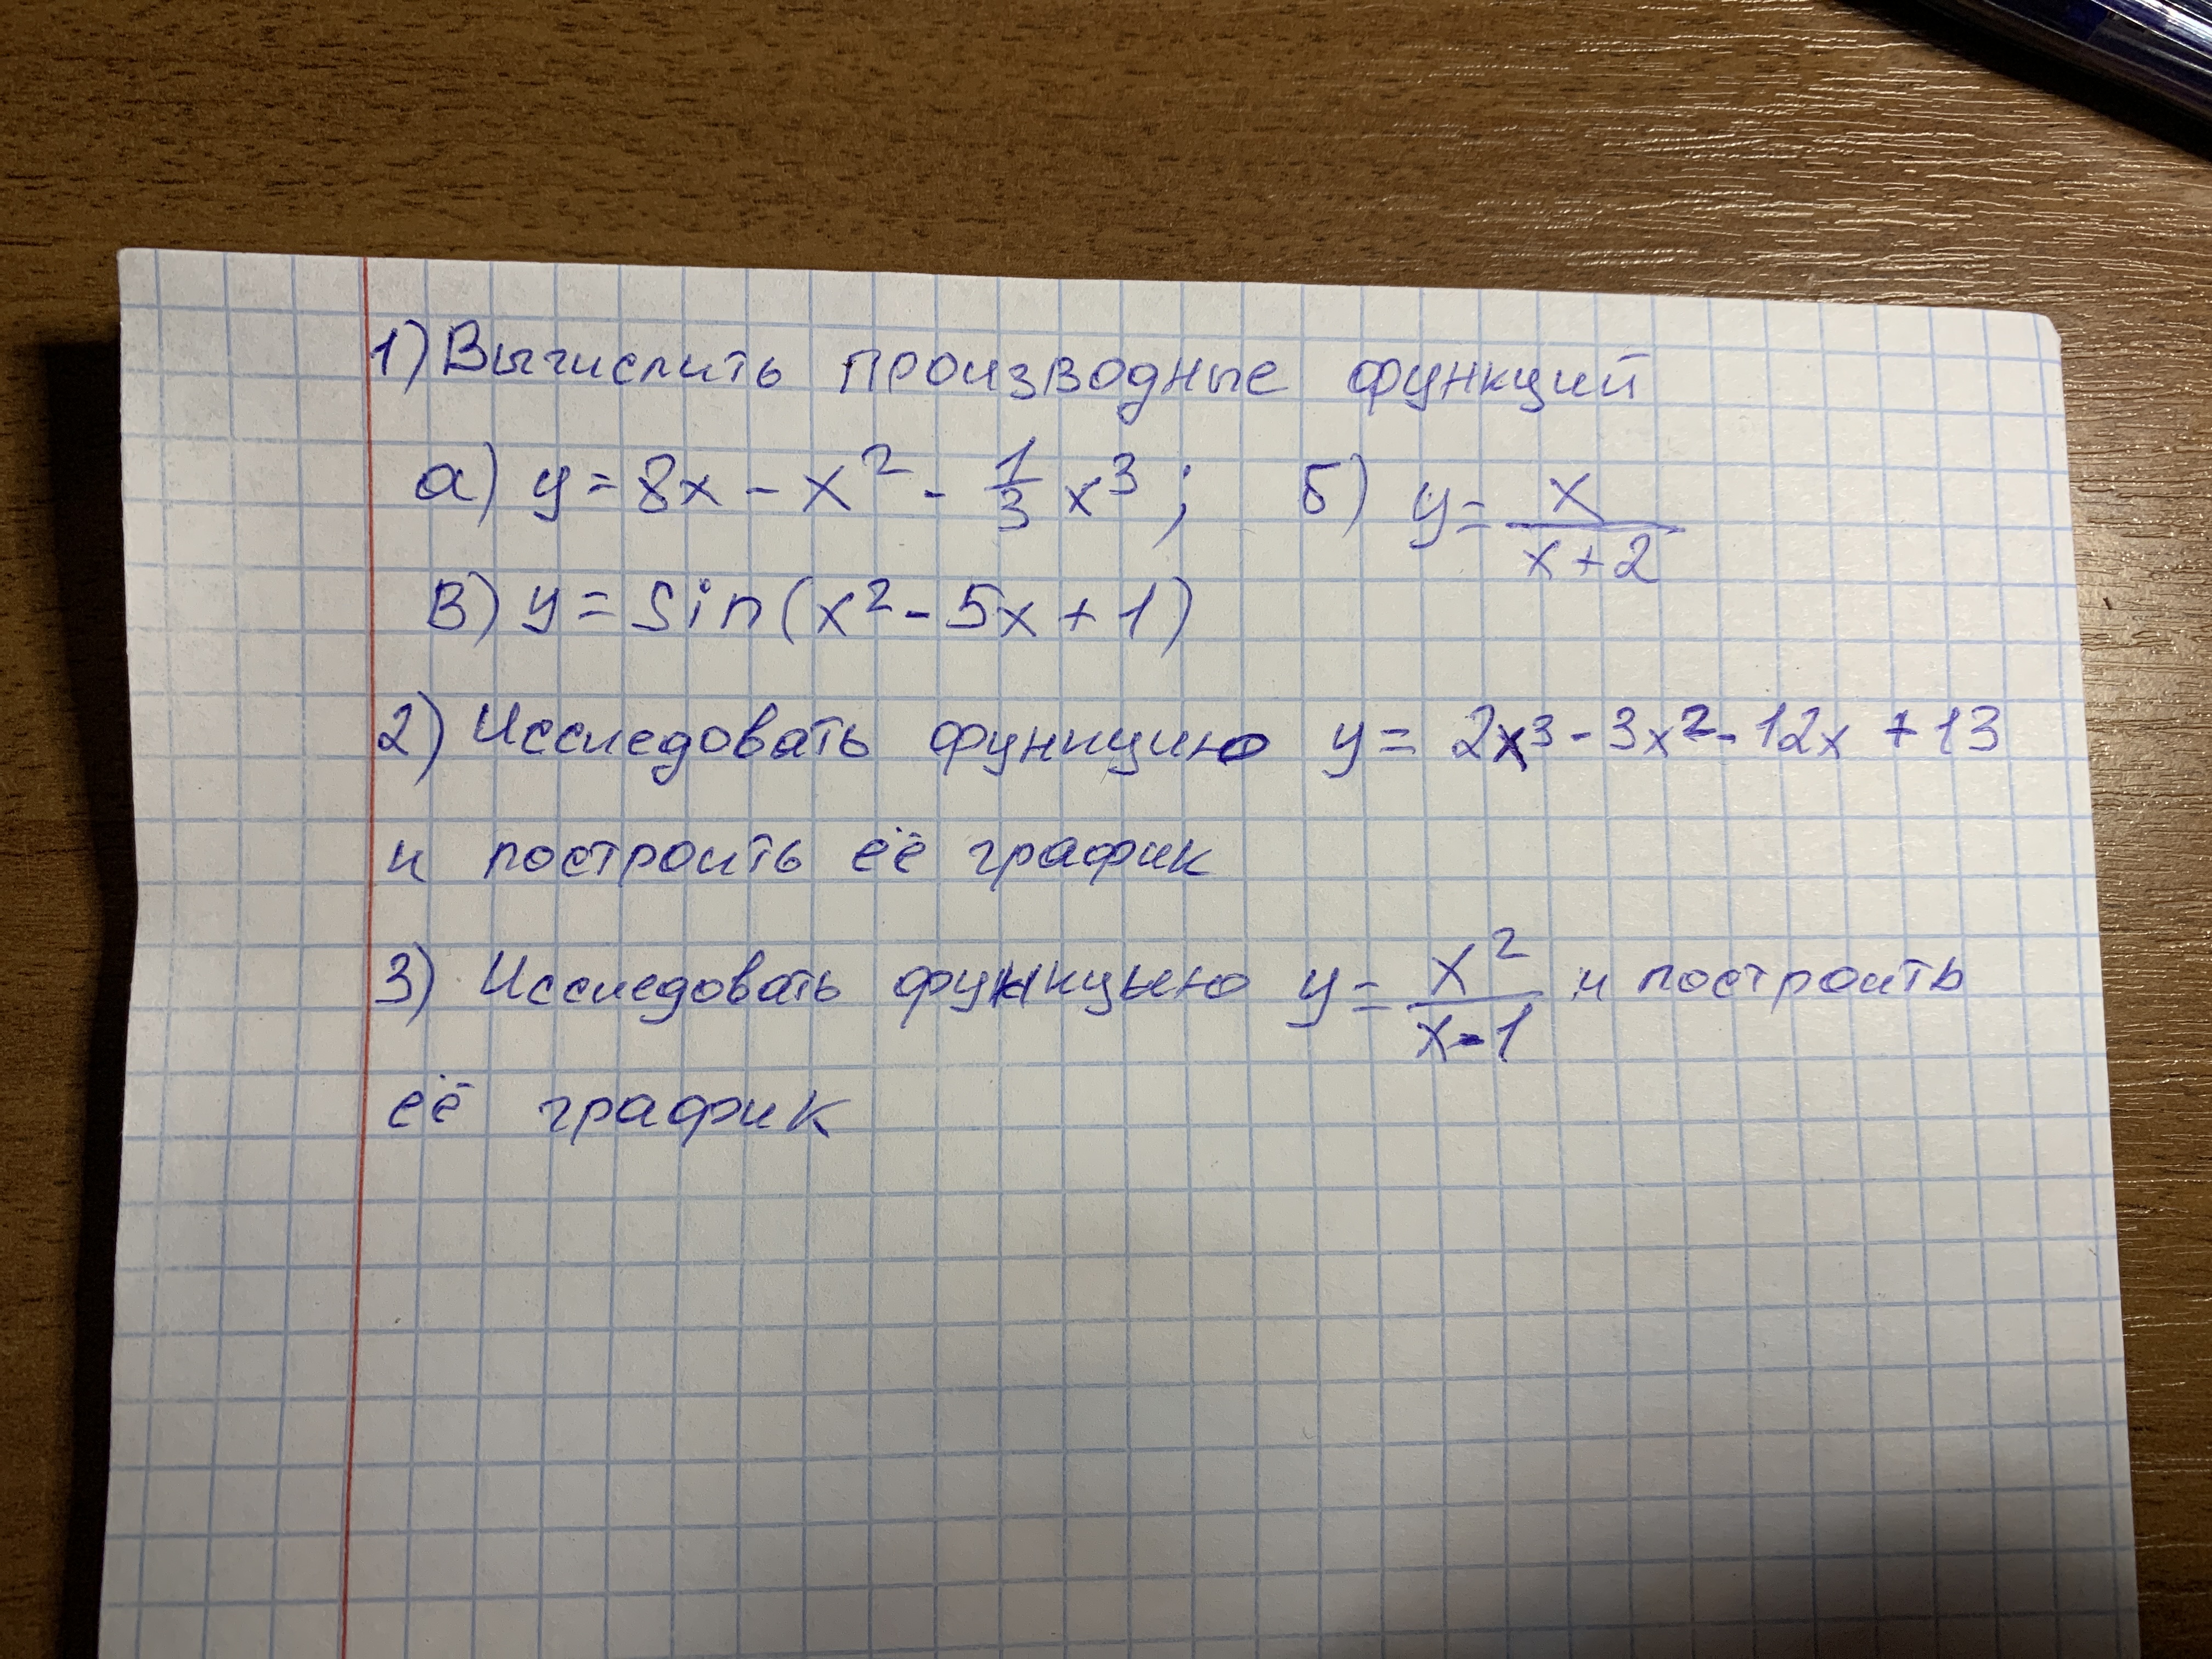 1) Вычислить производные функций
а) y = 8x - x² - 1/3 x³ ; б) y = x/(x+2)
в) y = sin(x² - 5x + 1)
2) Исследовать функцию y = 2x³ - 3x² - 12x + 13
и построить её график
3) Исследовать функцию y = x²/(x-1) и построить
её график